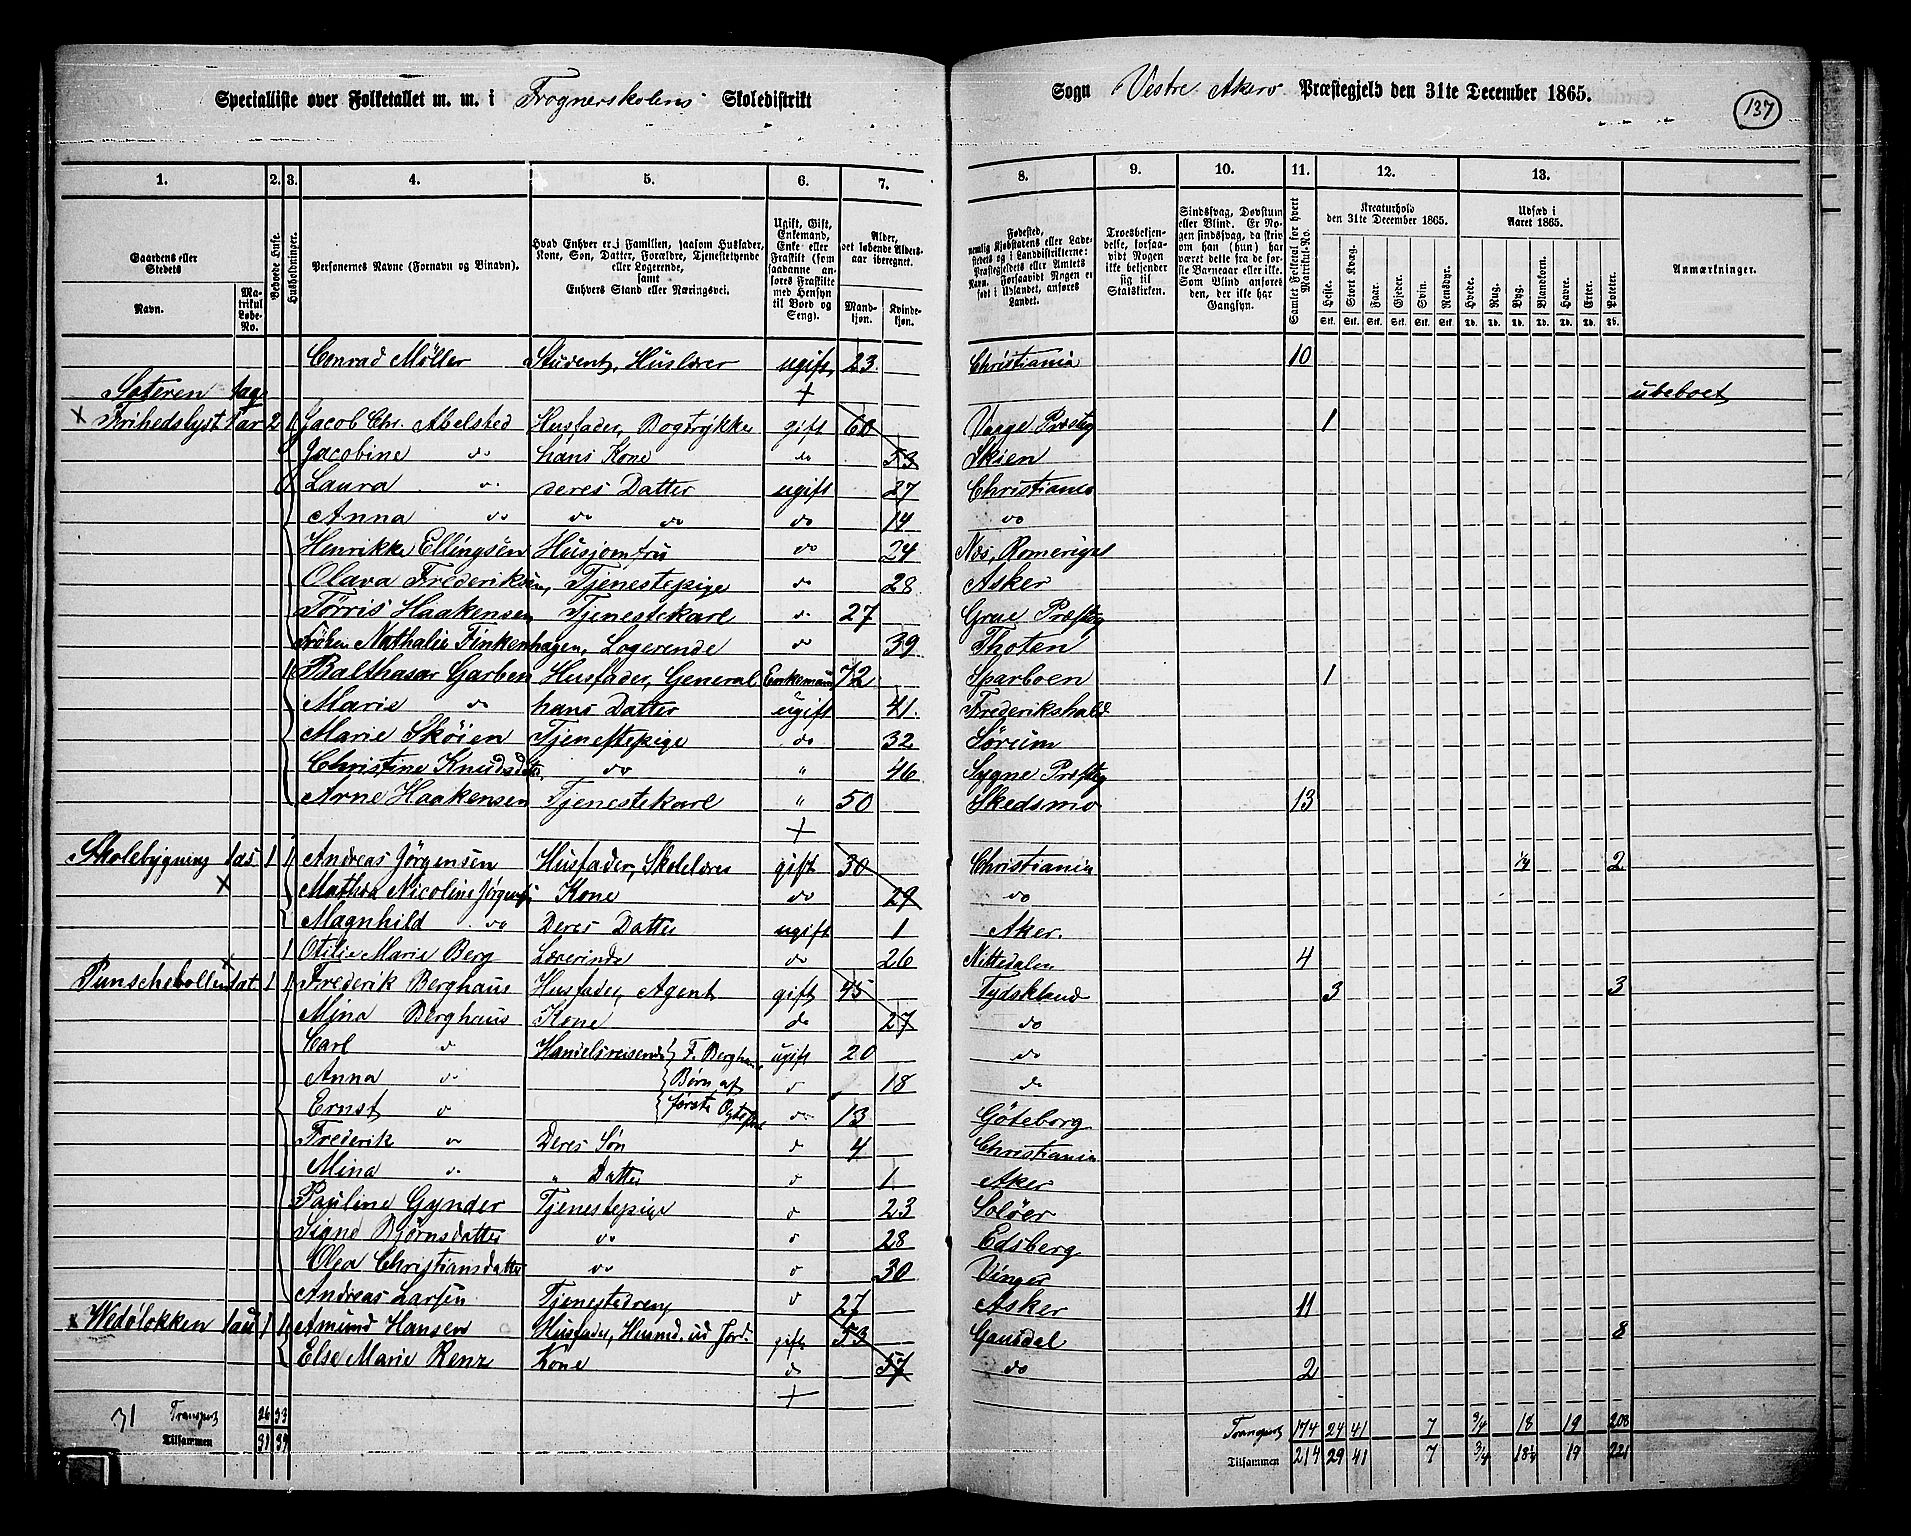 Specialliste over Folketallet m. m. i Frognerskolens Skoledistrikt Sogn Vestre Akers Præstegjeld den 31te December 1865.
137
1. 2. 3. 4. 5. 6. 7. 8. 9. 10. 11. 12. 13.
Gaardens eller Stedets
Navn.
Matrikul Løbe-No.
Beboede Huse.
Husholdninger.
Personernes Navne (Fornavn og Binavn).
Hvad Enhver er i Familien, saasom Husfader, Kone, Søn, Datter, Forældre, Tjenestetyende eller Logerende, samt Enhvers Stand eller Næringsvei.
Ugift, Gift, Enkemand, Enke eller Fraskilt (som saadanne anføres Fraskilte med Hensyn til Bord og Seng).
Alder, det løbende Alders-aar iberegnet.
Mandkjøn. Kvindekjøn.
Fødested, nemlig Kjøbstadens eller Ladestedets og i Landdistrikterne: Præstegjeldets eller Amtets Navn. Forsaavidt Nogen er født i Udlandet, anføres Landet.
Troesbekjendelse, forsaavidt Nogen ikke bekjender sig til Statskirken.
Sindssvag, Døvstum eller Blind. Er Nogen sindssvag, da skrives om han (hun) har været det fra de første Barneaar eller ikke. Som Blind ansøres den, der ikke har Gangsyn.
Samlet Folketal for hvert Matrikul-No.
Kreaturhold den 31te December 1865.
Heste. Stort Kvæg. Faar. Gjeder. Svin. Rensdyr.
Udsæd i Aaret 1865.
Hvede. Rug. Byg. Blandkorn. Havre. Erter. Poteter.
Anmærkninger.
Conrad Møller Student, Huslærer ugift 23. Christiania 10
Sæteren 1aq + ubeboet
x Frihedslyst 1ar 2 1 Jacob Chr. Abelsted Husfader, Bogtrykke gift 60 Vaage Præsteg 1
Jacobine do hans Kone do 53 Skien
Laura do deres Datter ugift 27 Christiania
Anna do do do do 14 do
Henrikke Ellingsen Husjomfru do 24 Næs, Romerige
Olava Frederiksen, Tjenestepige do 28 Asker
Tørris Haakensen Tjenestekarl do 27 Grue Præsteg
Frøken Nathalie Finkenhagen, Logerende do 39 Thoten
1 Balthasar Garben Husfader, General Enkemand 72 Sparboen 1
Marie do hans Datter ugift 41. Frederikshald
Marie Skøien Tjenestepige do 32 Sørum
Christine Knudsdatter do " 46 Præsteg
Arne Haakensen Tjenestekarl " 50 Skedsmo 13
+
Skolebygning 1as 1 1 Andreas Jørgensen Husfader, Skolelærer gift 30 Christiania 1/4 2
x Mathea Nicoline Jørgensen Kone do 29 do
Magnhild do Deres Datter ugift 1 Aker.
1 Otilie Marie Berg Lærerinde do 26 Nittedalen 4
Punschebollen 1at 1 1 Frederik Berghaus Husfader, Agent gift 45 Tydskland 3 3
Mina Berghaus Kone do 27 do
Carl do Handelsreisende F. Berghaus ugift 20 do
Anna do Børn af do 18 do
Ernst do første Ægteskab do 13 Göteborg
Frederik do Deres Søn do 4 Christiania
Mina do " Datter do 1. Aker
Pauline Gynder Tjenestepige do 23 Soløer
Signe Bjørnsdatter do do 28 Edsberg
Olea Christiansdatter do do 30 Vinger
Andreas Larsen Tjenestedreng do 27 Asker 11
x Wedøløkken 1au 1 1 Amund Hansen Husfader, Husmd. u Jord. gift 53 Gausdal 8
Else Marie Renz Kone do 57 do 2
+
31 Transport 26 33 Transport 174 24 41 7 3/4 18 19 208
Tilsammen 31 39 Tilsammen 214 29 41 7 3/4 18 1/4 19 221